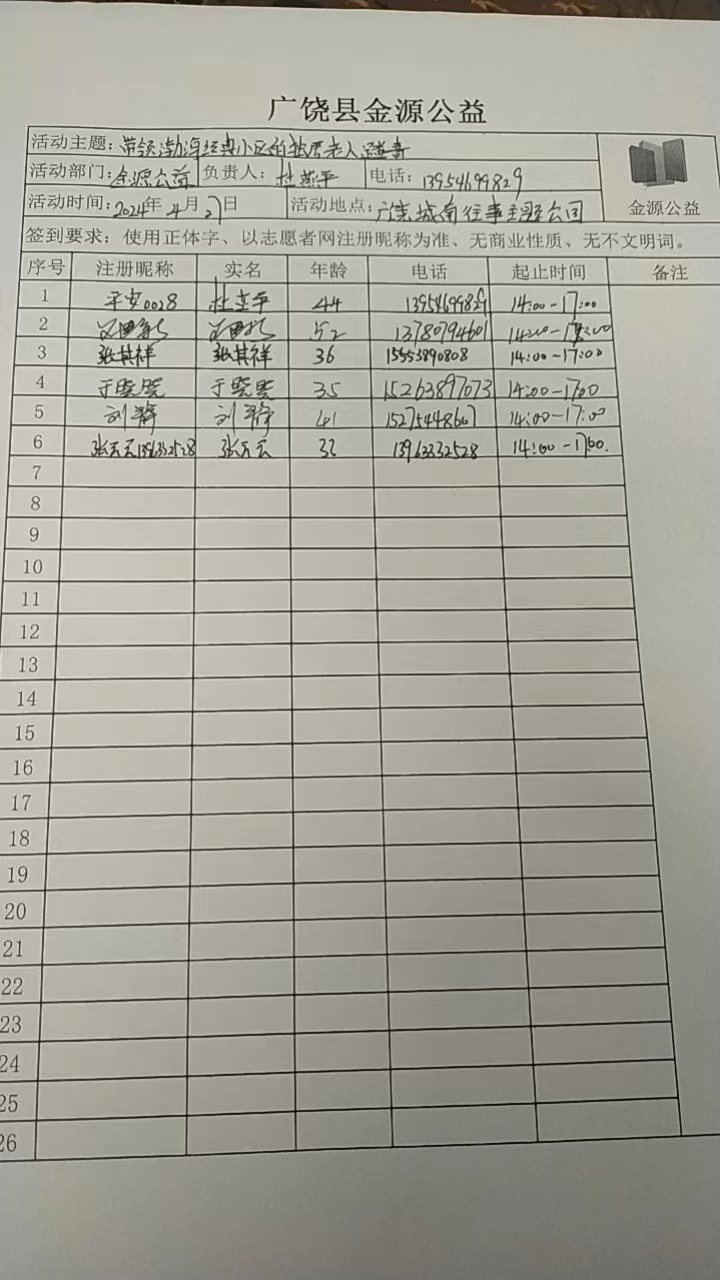 广饶县金源公益
活动主题：带领渤海经典小区的独居老人踏春
活动部门：金源公益 负责人：杜燕平 电话：13954699829
金源公益
活动时间：2024年4月27日 活动地点：广饶城南往事主题公园
签到要求：使用正体字、以志愿者网注册昵称为准、无商业性质、无不文明词。
序号 注册昵称 实名 年龄 电话 起止时间 备注
1 平安0028 杜燕平 44 13954699829 14:00-17:00
2 52 13780794601 14:00-17:00
3 张其祥 张其祥 36 15553890808 14:00-17:00
4 于晓晓 于晓晓 35 15263897073 14:00-17:00
5 刘静 刘静 41 15275448607 14:00-17:00
6 张云云 张云云 13963332528 14:00-17:00.
7
8
9
10
11
12
13
14
15
16
17
18
19
20
21
22
23
24
25
26